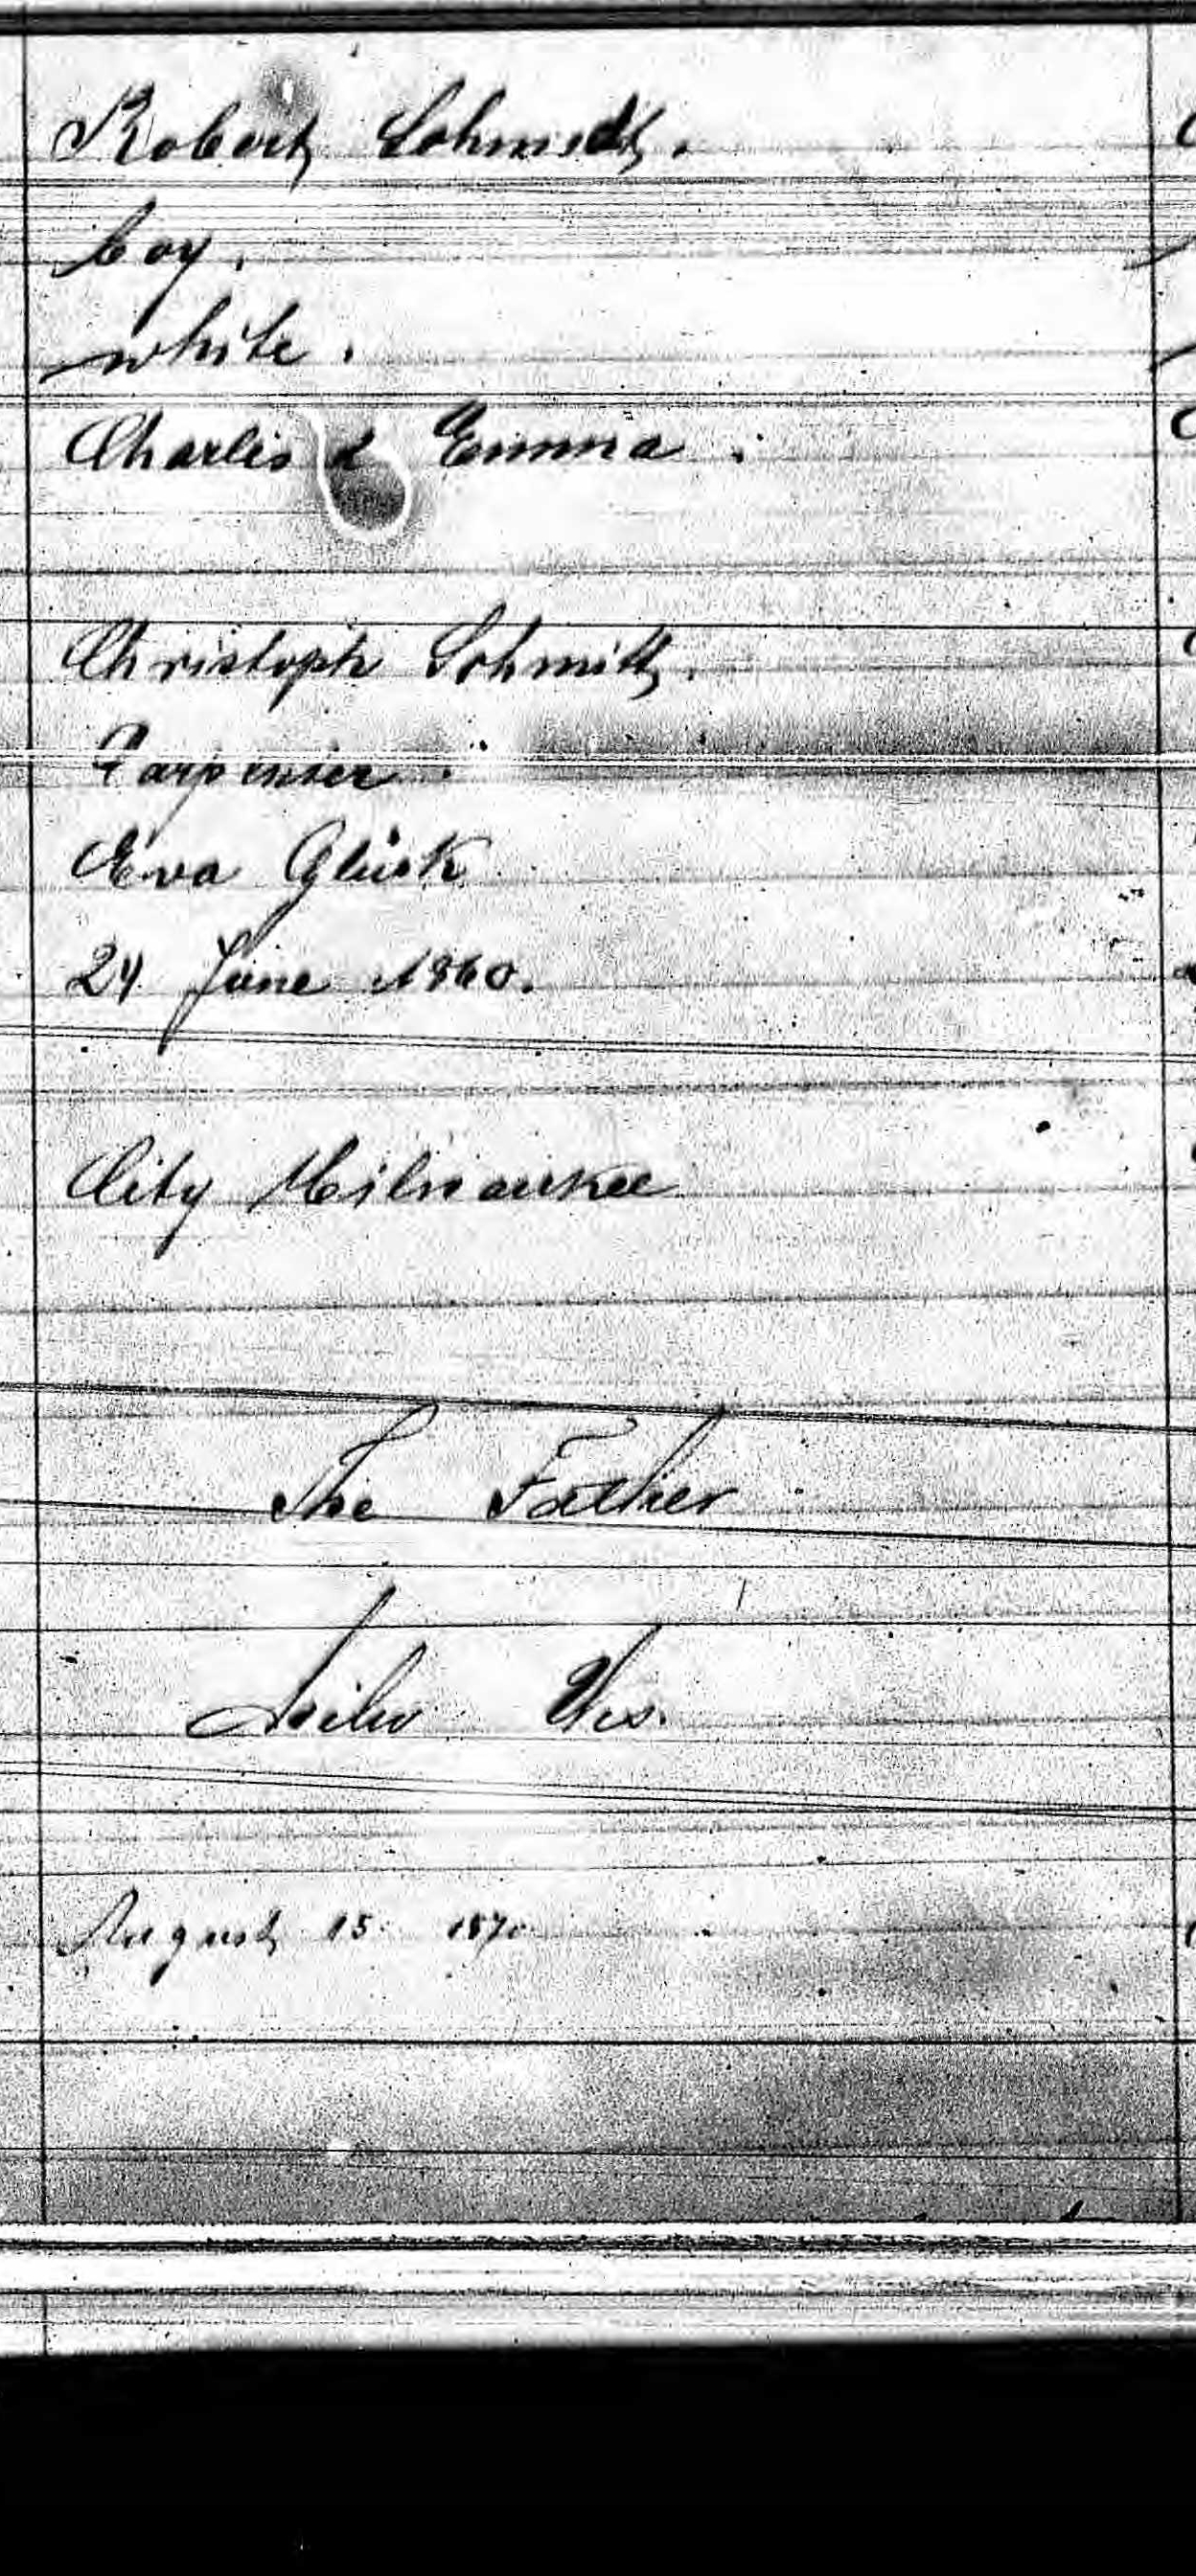 Robert Schmidt.
boy.
white.
Charlis & Emma.
Christoph Schmitt.
Carpenter.
Eva Glück
24. June 1860.
City Milwaukee
The Father
Milw Wis.
August 15 1870